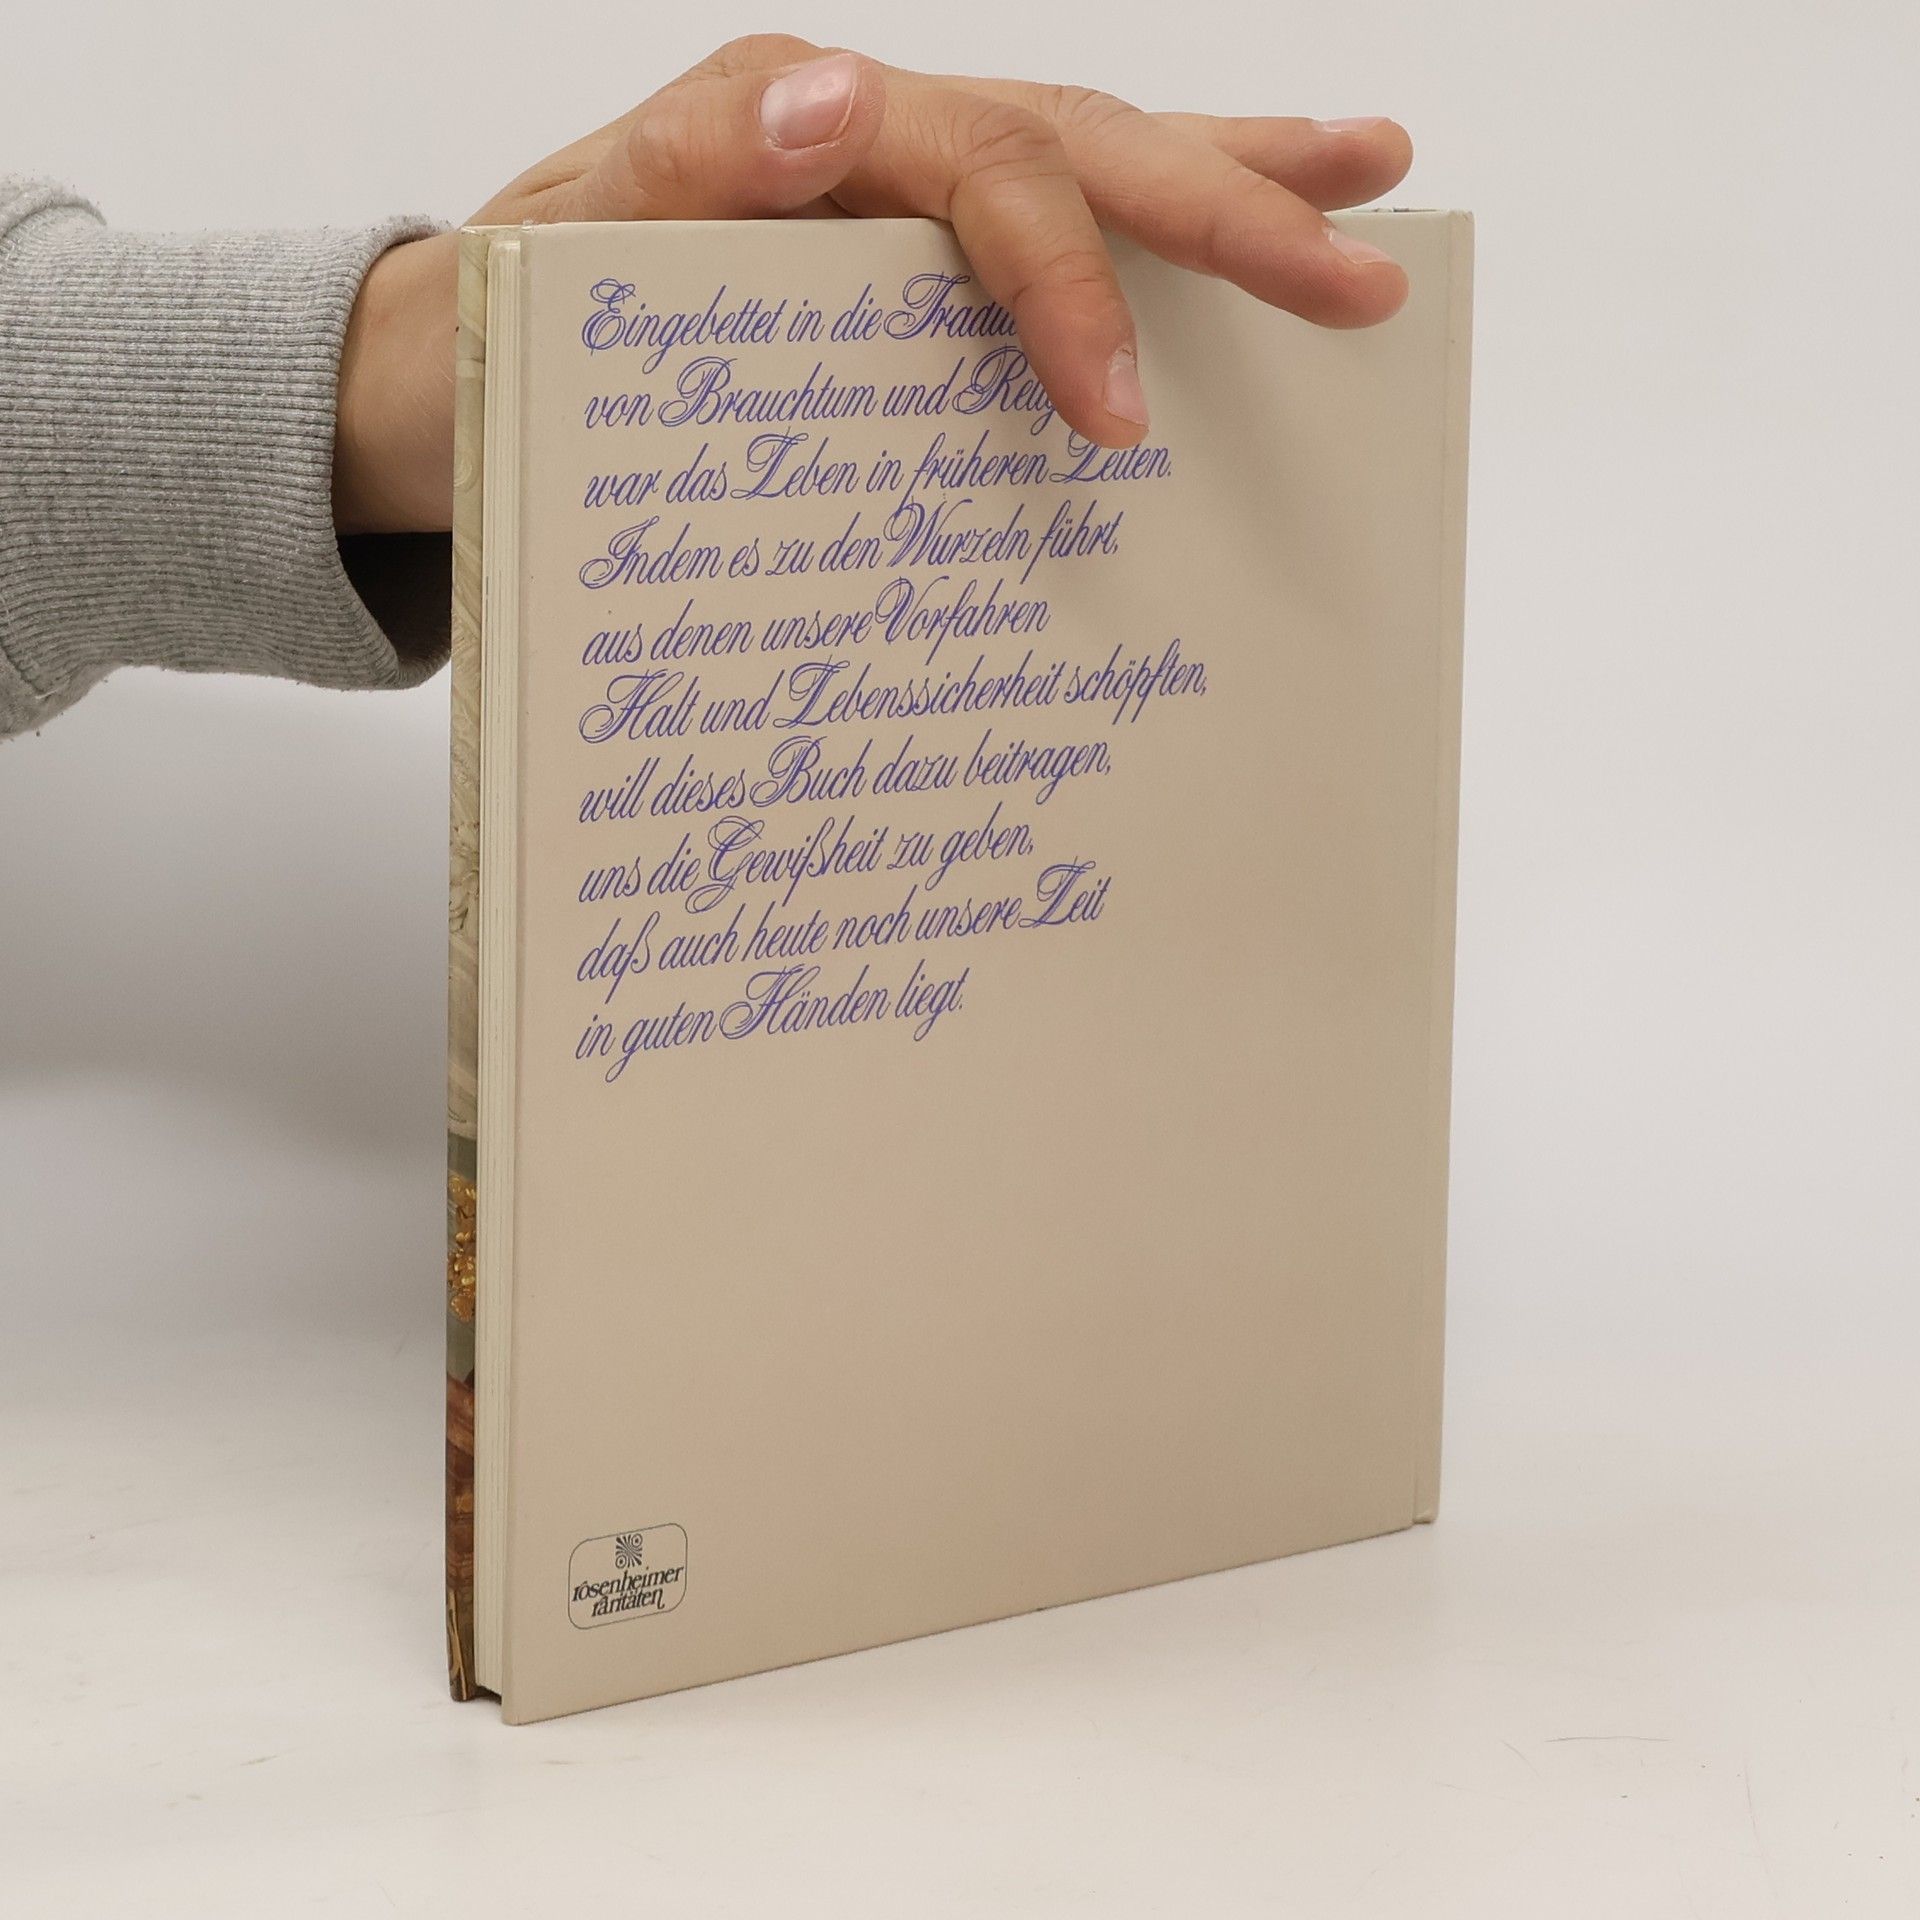 Eingebettet in die
von Brauchtum und
war das Leben in früheren Zeiten.
Indem es zu den Wurzeln führt,
aus denen unsere Vorfahren
Halt und Lebenssicherheit schöpften,
will dieses Buch dazu beitragen,
uns die Gewißheit zu geben,
daß auch heute noch unsere Zeit
in guten Händen liegt.
rosenheimer
raritäten